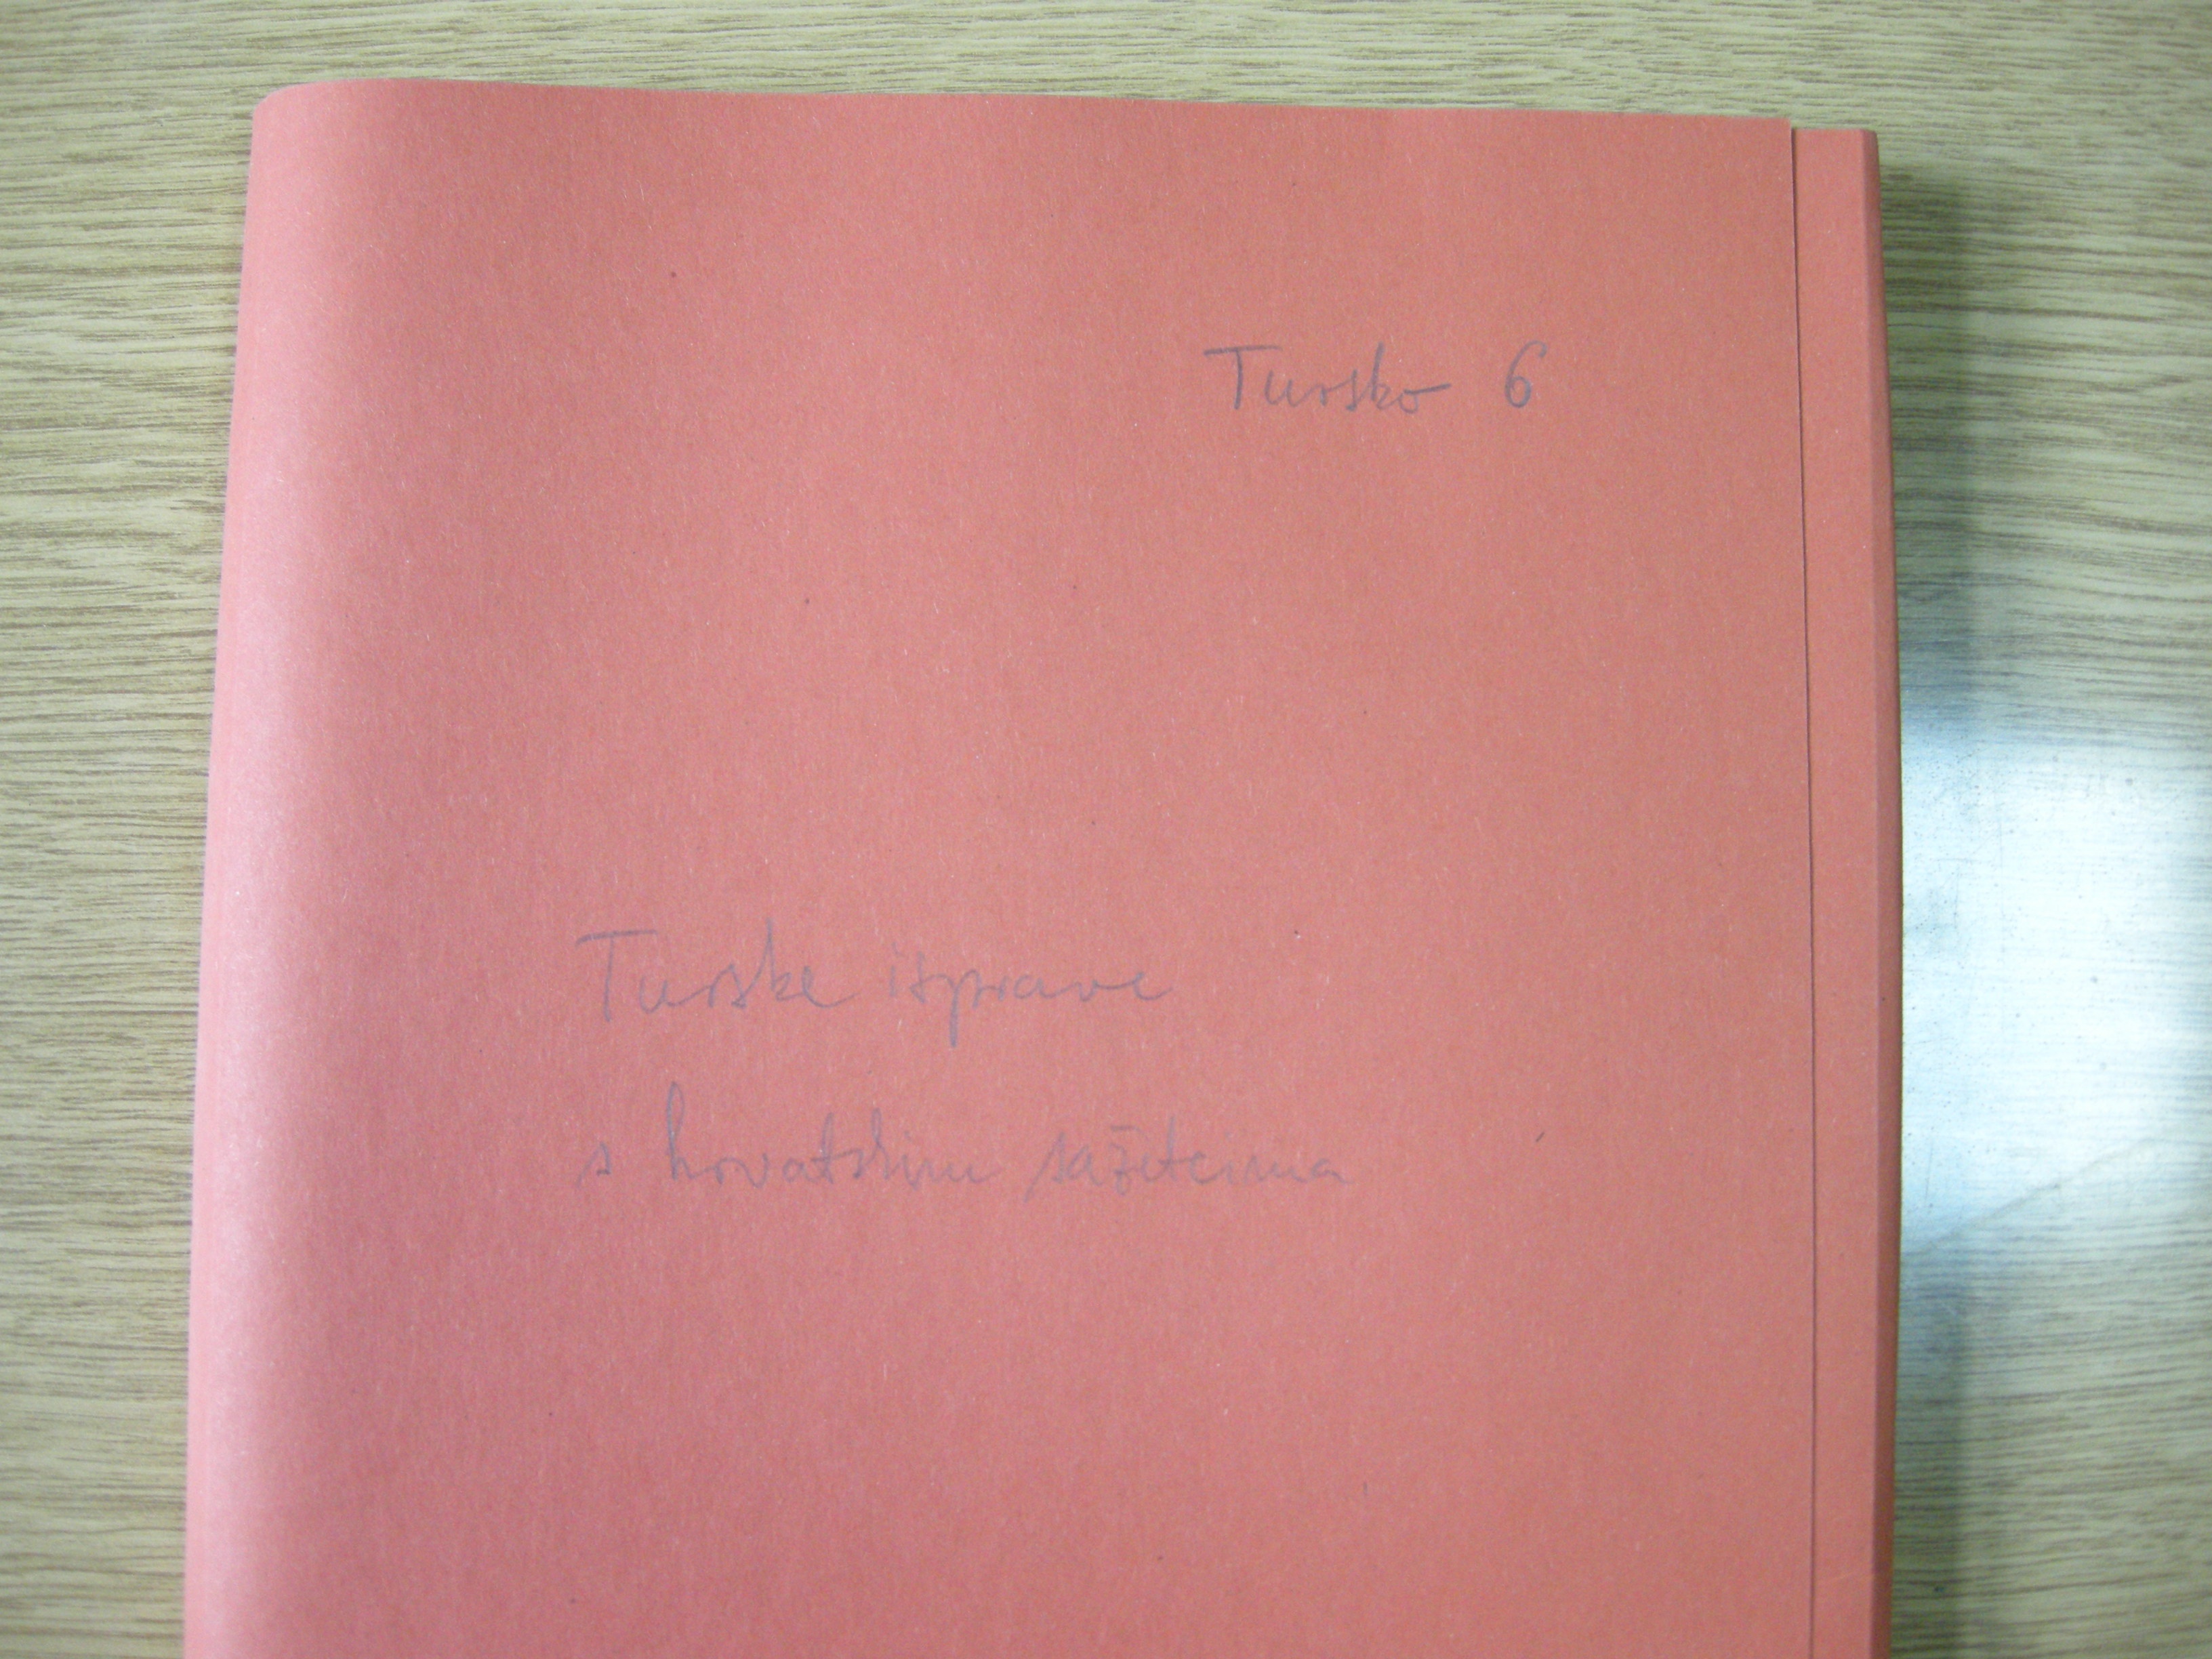 Tursko 6
Turske isprave
s hrvatskim sažetcima